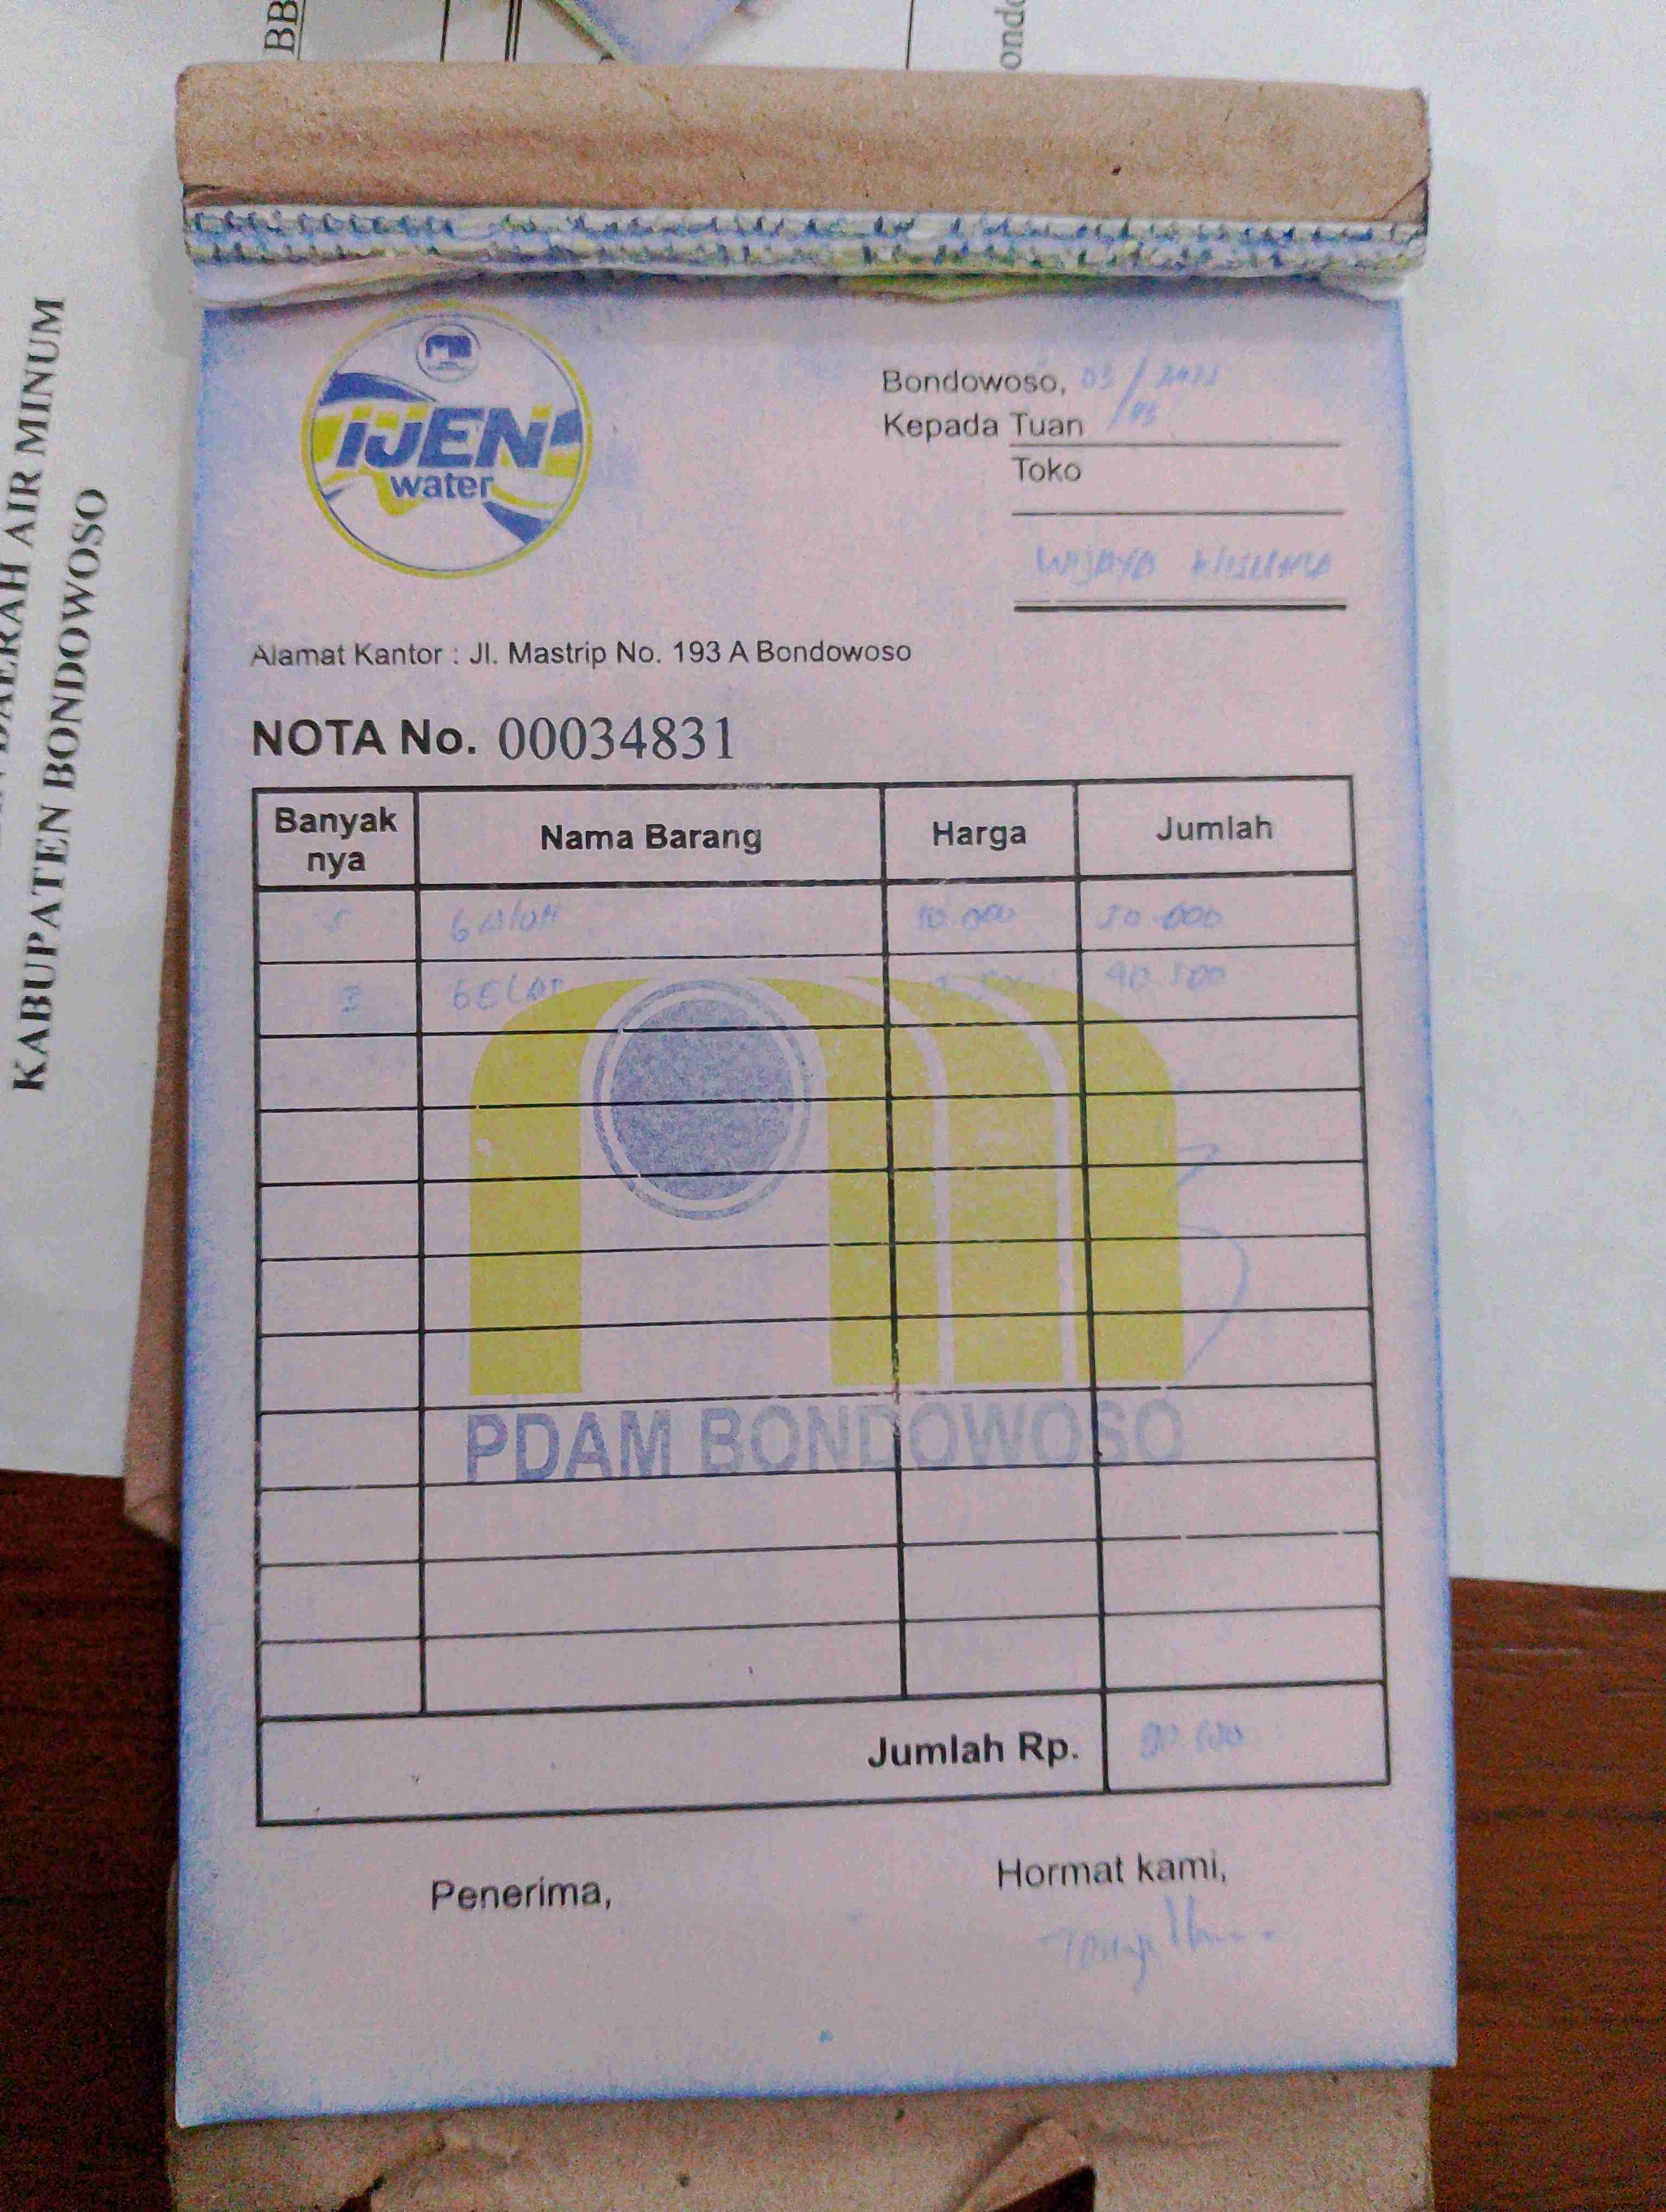 BB
ondo
DAERAH AIR MINUM
KABUPATEN BONDOWOSO
IJEN
water
Bondowoso, 03/03 2023
Kepada Tuan
Toko
WIJAYA KUSUMA
Alamat Kantor : Jl. Mastrip No. 193 A Bondowoso
NOTA No. 00034831
Banyak nya Nama Barang Harga Jumlah
5 GALON 10.000 50.000
3 GELAS 40.500
PDAM BONDOWOSO
Jumlah Rp. 90.500
Penerima,
Hormat kami,